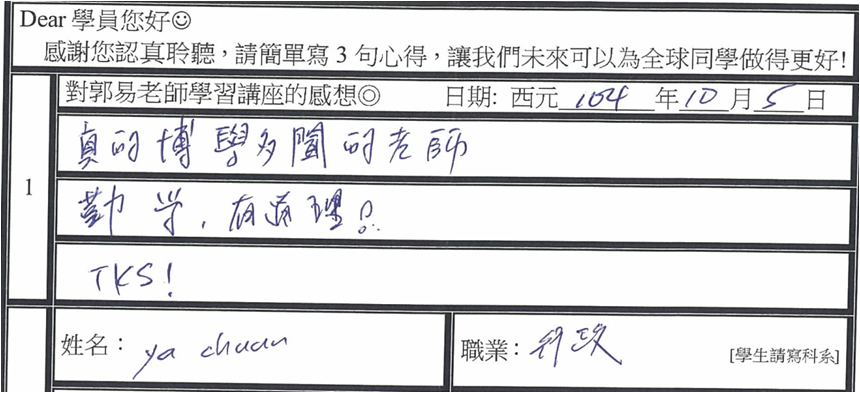 Dear 學員您好☺
感謝您認真聆聽，請簡單寫 3 句心得，讓我們未來可以為全球同學做得更好!
1
對郭易老師學習講座的感想◎ 日期: 西元 104 年 10 月 5 日
真的博學多聞的老師
勤学，有道理!
TKS!
姓名： ya chuan
職業： 行政 [學生請寫科系]